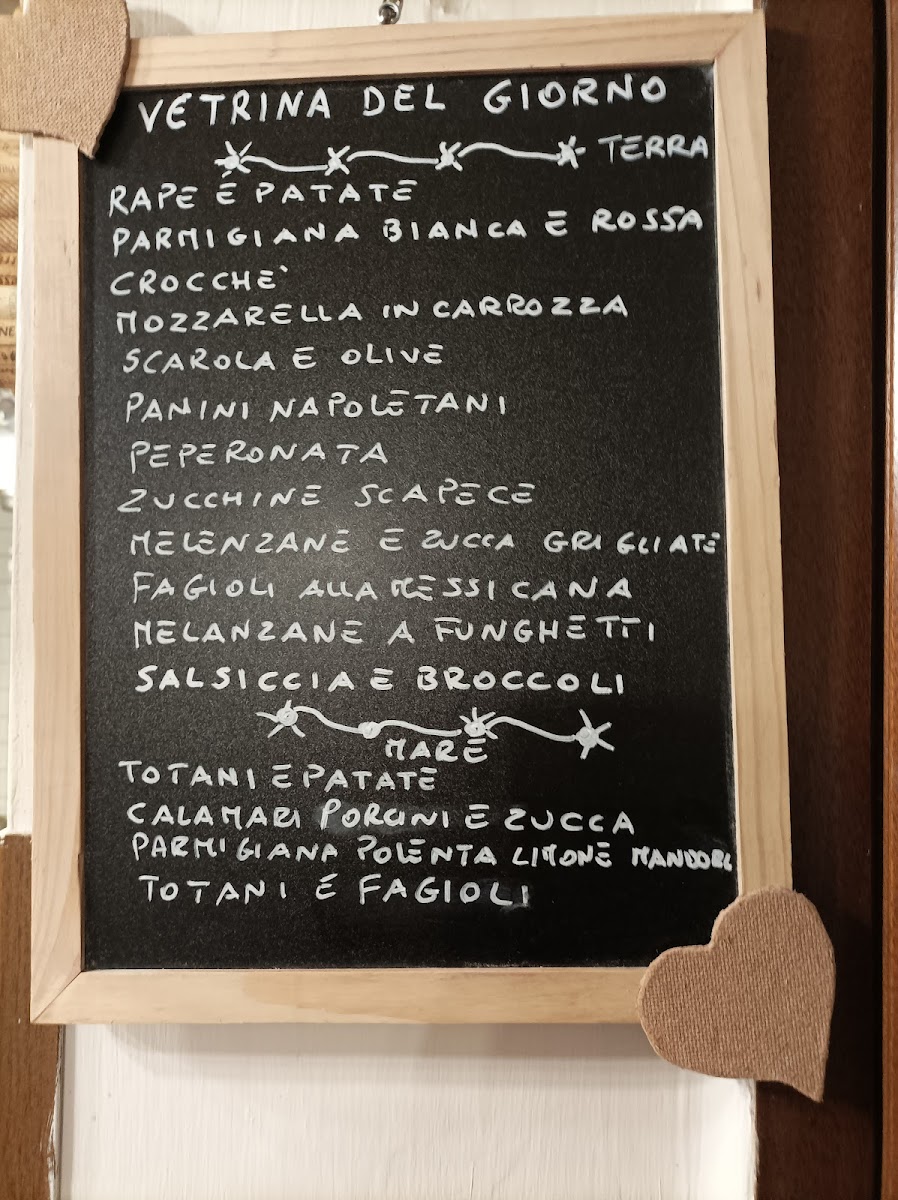 VETRINA DEL GIORNO
TERRA
RAPE E PATATE
PARMIGIANA BIANCA E ROSSA
CROCCHE'
MOZZARELLA IN CARROZZA
SCAROLA E OLIVE
PANINI NAPOLETANI
PEPERONATA
ZUCCHINE SCAPECE
MELENZANE E ZUCCA GRIGLIATE
FAGIOLI ALLA MESSICANA
MELANZANE A FUNGHETTI
SALSICCIA E BROCCOLI
MARE
TOTANI E PATATE
CALAMARI PORCINI E ZUCCA
PARMIGIANA POLENTA LIMONE MANDORL
TOTANI E FAGIOLI